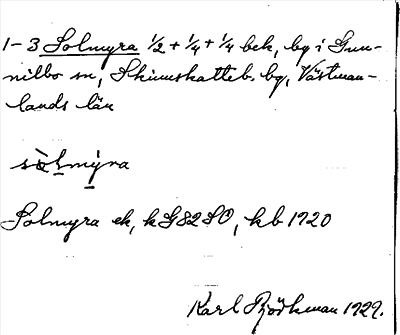 1-3 Solmyra ½ + ¼ + ¼ bek, by i Gun-
nilbo sn, Skinnskattebg bg, Västman-
lands län
sòlmýra
Solmyra ek, k G82SO, kb 1920
Karl Björkman 1929.